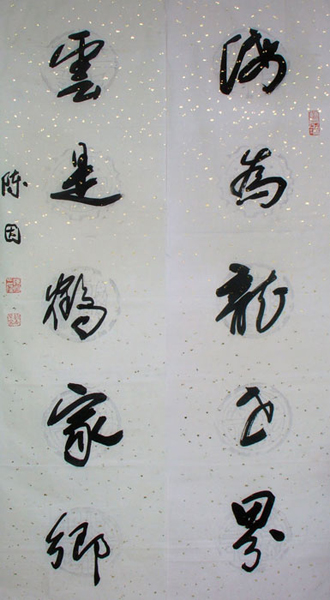 海為龍世界
雲是鶴家鄉
陈因